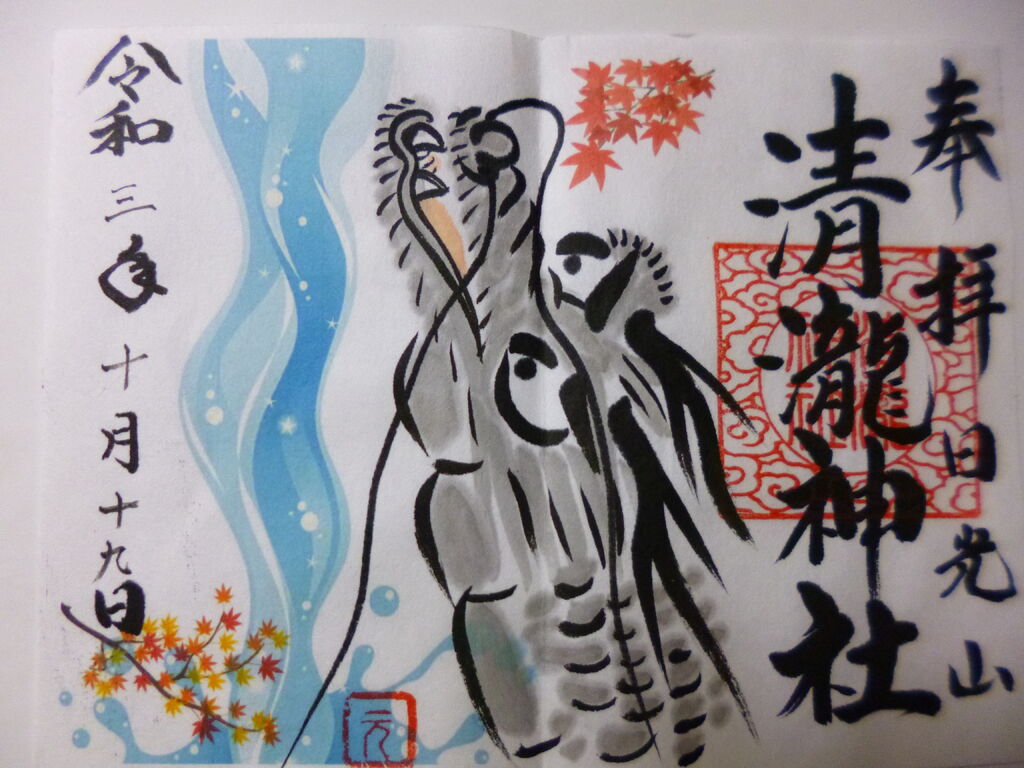 奉拝 日光山
清瀧神社
令和三年十月十九日